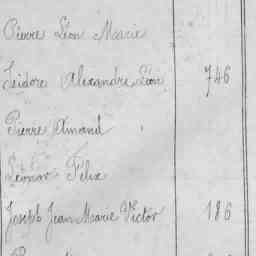 Pierre Léon Marie
Isidore Alexandre Léon 746
Pierre Amand
Léonor Félix
Joseph Jean Marie Victor 186